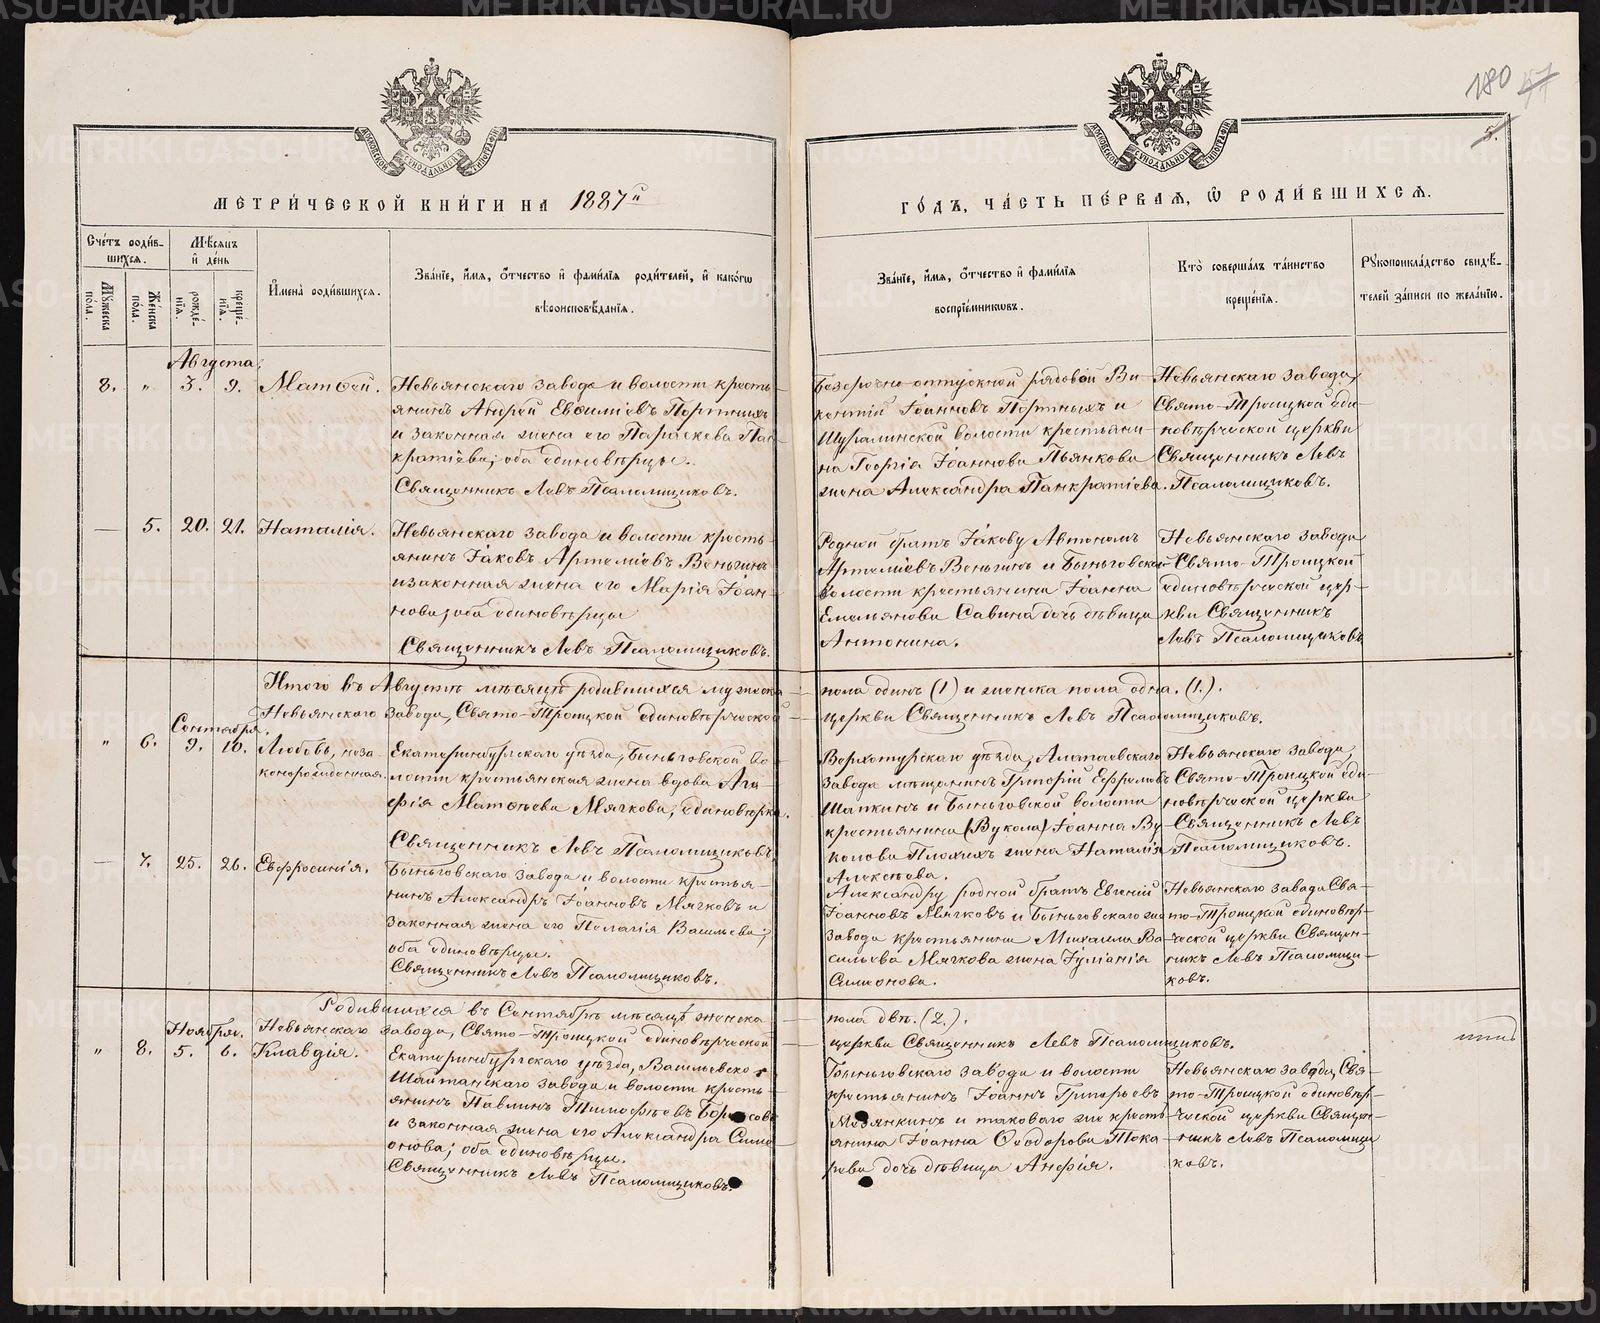 180
5.
МОСКОВСКОЙ СѴНОДАЛЬНОЙ ТИПОГРАФІИ
МОСКОВСКОЙ СѴНОДАЛЬНОЙ ТИПОГРАФІИ
МЕТРИ́ЧЕСКОЙ КНИ́ГИ НА 1887й
ГО́ДЪ, ЧА́СТЬ ПЕ́РВАѦ, Ѡ РОДИ́ВШИХСѦ.
Сче́тъ роди́в-
шихсѧ.
Мꙋжеска по́ла.
Же́нска по́ла.
Мѣ́сѧцъ и де́нь
рожде́-нїѧ.
креще́-нїѧ.
И҆мена̀ роди́вшихсѧ.
Зва́нїе, и҆́мѧ, ѻ҆́тчество и҆ фами́лїѧ роди́телей, и҆ како́гѡ
вѣроисповѣ́данїѧ.
Зва́нїе, и҆́мѧ, ѻ҆́тчество и҆ фами́лїѧ
воспрїе́мникѡвъ.
Кто̀ соверша́лъ та́инство
креще́нїѧ.
Рꙋкоприкла́дство свидѣ́-
телей за́писи по жела́нїю.
Августа
8. " 3. 9. Матѳей.
Невьянскаго завода и волости кресть-
янинъ Андрей Евѳиміевъ Портныхъ
и законная жена его Параскева Пан-
кратіева; оба единовѣрцы.
Священникъ Левъ Псаломщиковъ.
Безсрочно отпускной рядовой Ви-
кентій Іоанновъ Портныхъ и
Шуралинской волости крестьяни-
на Георгія Іоаннова Пьянкова
жена Александра Панкратіева.
Невьянскаго завода,
Свято-Троицкой еди-
новѣрческой церкви
Священникъ Левъ
Псаломщиковъ.
— 5. 20. 21. Наталія.
Невьянскаго завода и волости кресть-
янинъ Іаковъ Артеміевъ Веньгинъ
и законная жена его Марія Іоан-
нова; оба единовѣрцы
Священникъ Левъ Псаломщиковъ.
Родной братъ Іакову Автономъ
Артеміевъ Веньгинъ и Быньговской
волости крестьянина Іоанна
Емельянова Савина дочь дѣвица
Антонина.
Невьянскаго завода
Свято-Троицкой
единовѣрческой цер-
кви Священникъ
Левъ Псаломщиковъ
Итого въ Августѣ мѣсяцѣ родившихся мужеска — пола одинъ (1) и женска пола одна. (1.).
Невьянскаго завода, Свято-Троицкой единовѣрческой — церкви Священникъ Левъ Псаломщиковъ.
Сентября.
" 6. 9. 10. Любовь, неза-
коннорожденная.
Екатеринбургскаго уѣзда, Быньговской во-
лости крестьянская жена вдова Ага-
фія Матѳеева Мягкова, единовѣрка.
Священникъ Левъ Псаломщиковъ.
Верхотурскаго уѣзда, Алапаевскаго
завода мѣщанинъ Григорій Ефремовъ
Шапкинъ и Быньговской волости
крестьянина (Вукола) Іоанна Ву-
колова Плохихъ жена Наталія
Алексѣева.
Невьянскаго завода,
Свято-Троицкой еди-
новѣрческой церкви
Священникъ Левъ
Псаломщиковъ.
— 7. 25. 26. Евфросинія.
Быньговскаго завода и волости крестья-
нинъ Александръ Іоанновъ Мягковъ и
законная жена его Пелагія Васильева;
оба единовѣрцы.
Священникъ Левъ Псаломщиковъ.
Александру родной братъ Евгеній
Іоанновъ Мягковъ и Быньговскаго же
завода крестьянина Михаила Ва-
сильева Мягкова жена Іуліанія
Симеонова.
Невьянскаго завода Свя-
то-Троицкой единовѣр-
ческой церкви Священ-
никъ Левъ Псаломщи-
ковъ.
Родившихся въ Сентябрѣ мѣсяцѣ женска — пола двѣ. (2.).
Невьянскаго завода, Свято-Троицкой единовѣрческой — церкви Священникъ Левъ Псаломщиковъ.
Ноября.
" 8. 5. 6. Клавдія.
Екатеринбургскаго уѣзда, Васильевско-
Шайтанскаго завода и волости кресть-
янинъ Павлинъ Тимоѳѣевъ Борисовъ
и законная жена его Александра Симе-
онова; оба единовѣрцы.
Священникъ Левъ Псаломщиковъ.
Быньговскаго завода и волости
крестьянинъ Іоаннъ Григорьевъ
Медянкинъ и таковаго же кресть-
янина Іоанна Ѳеодорова Тока-
рева дочь дѣвица Анфія.
Невьянскаго завода, Свя-
то-Троицкой единовѣр-
ческой церкви Священ-
никъ Левъ Псаломщи
ковъ.
METRIKI.GASO-URAL.RU